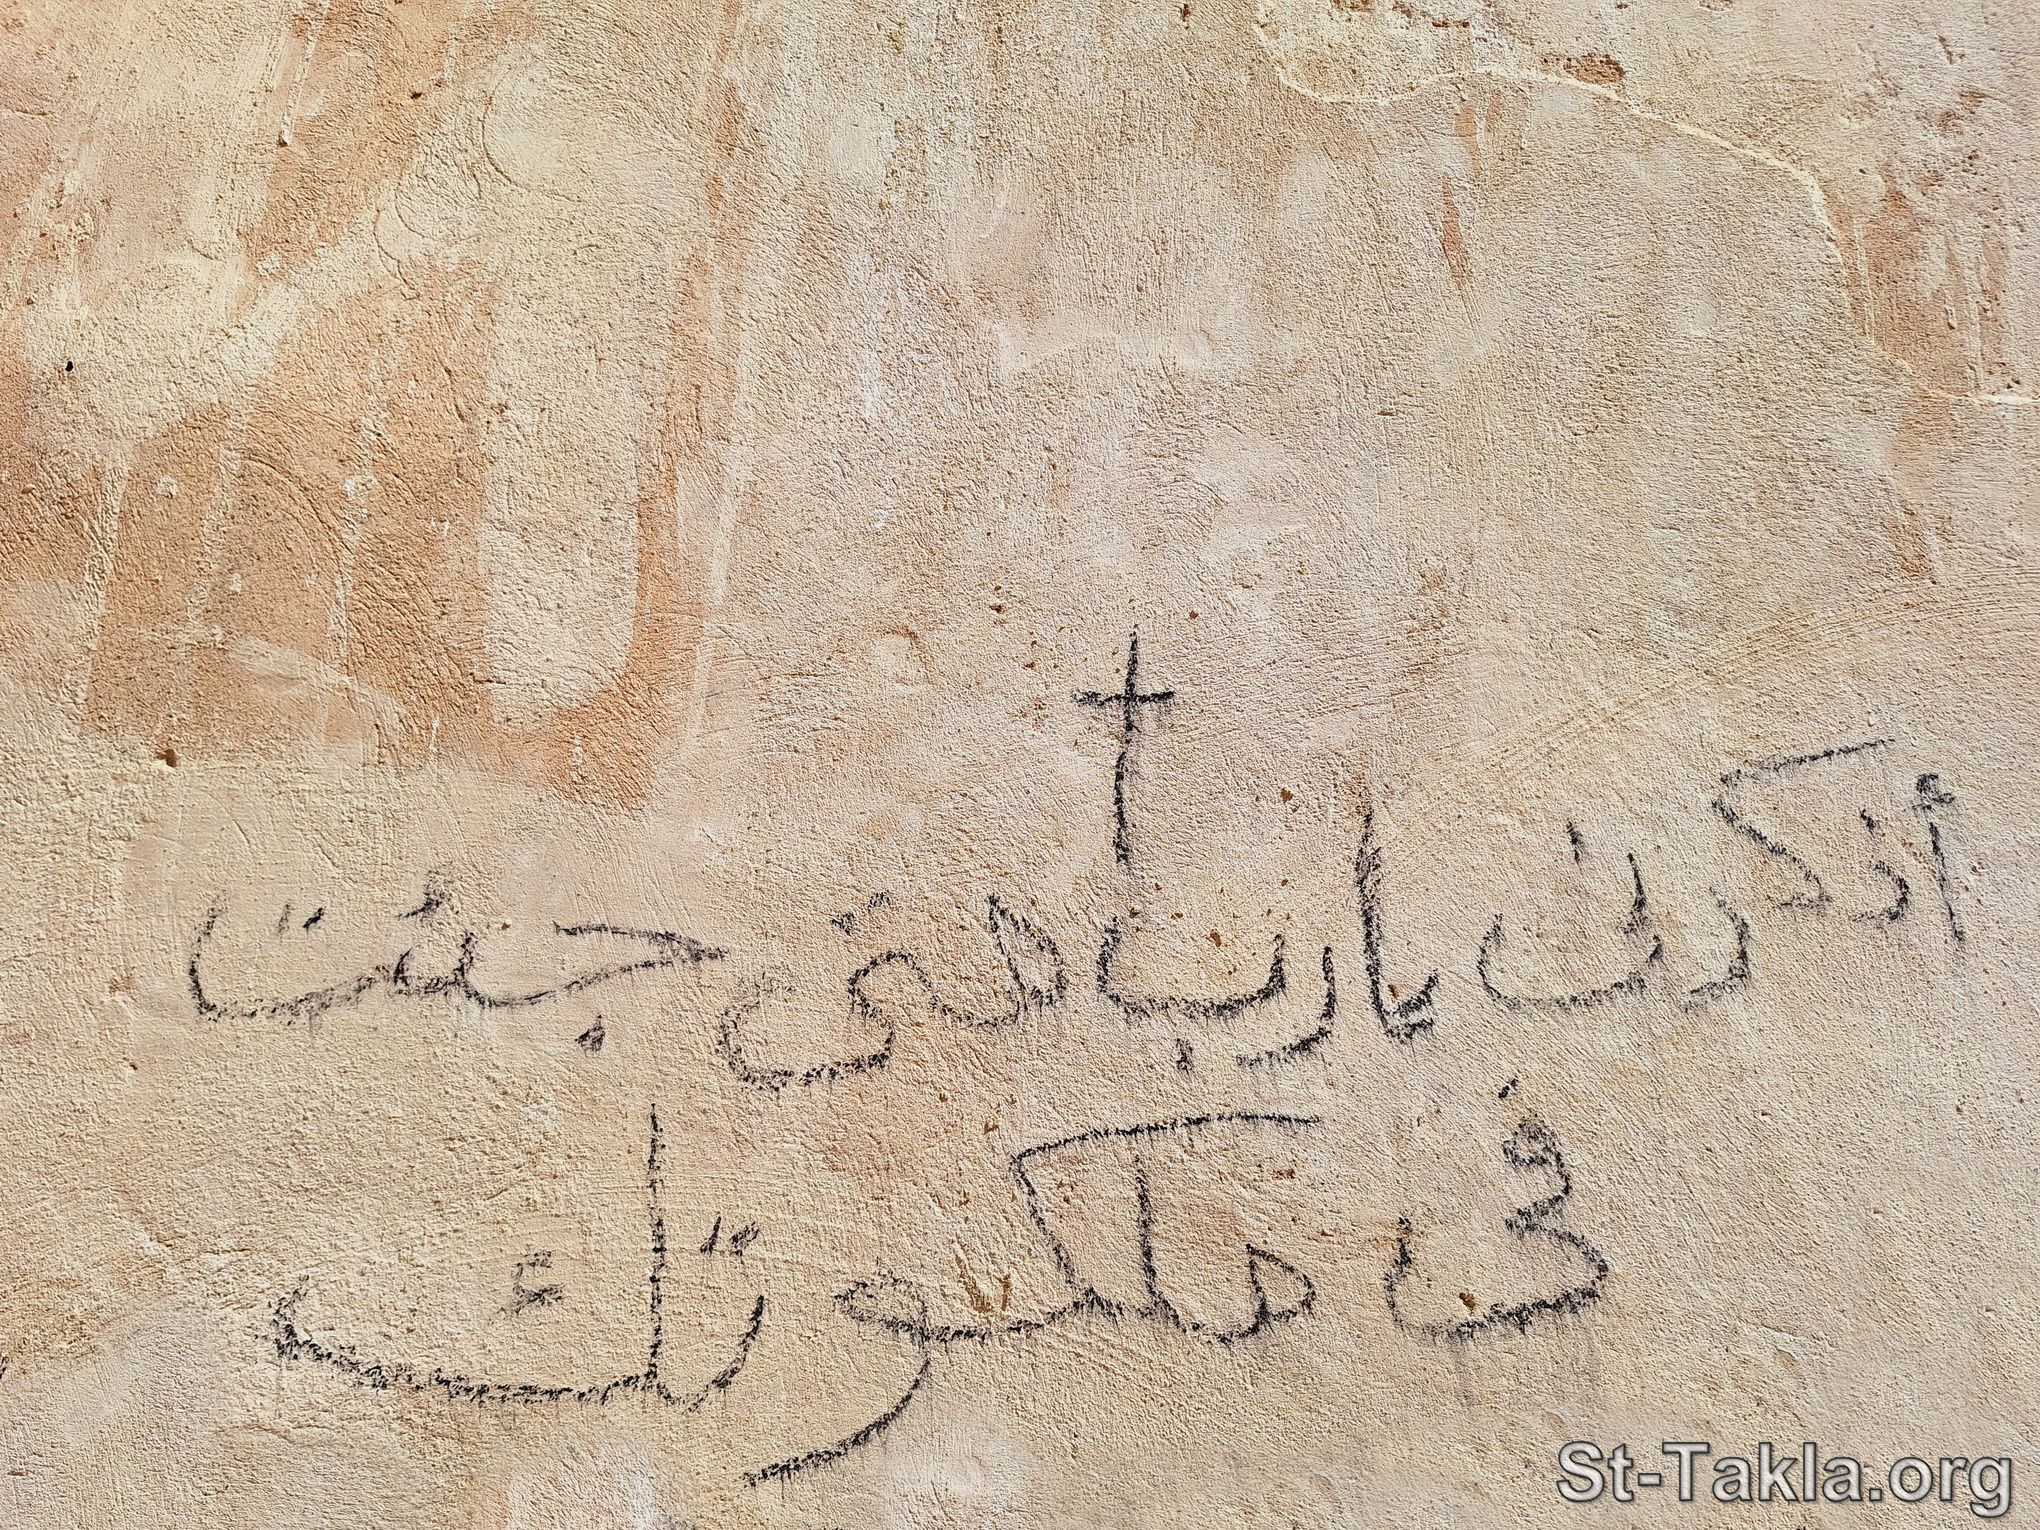 أذكرنى يارب متى جئت
فى ملكوتك
St-Takla.org